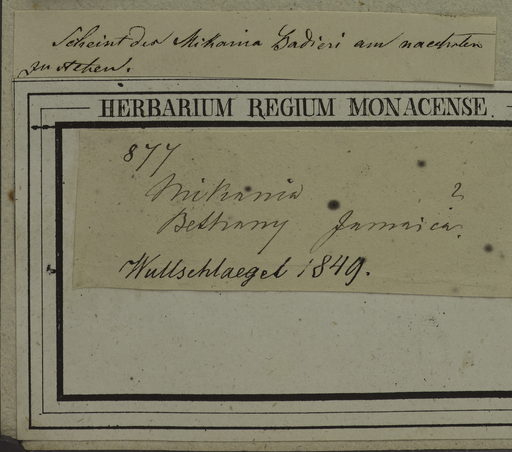 Scheint der Mikania Badieri am naechsten
zu stehen.
HERBARIUM REGIUM MONACENSE
877
Mikania ?
Bethany Jamaica.
Wullschlaegel 1849.